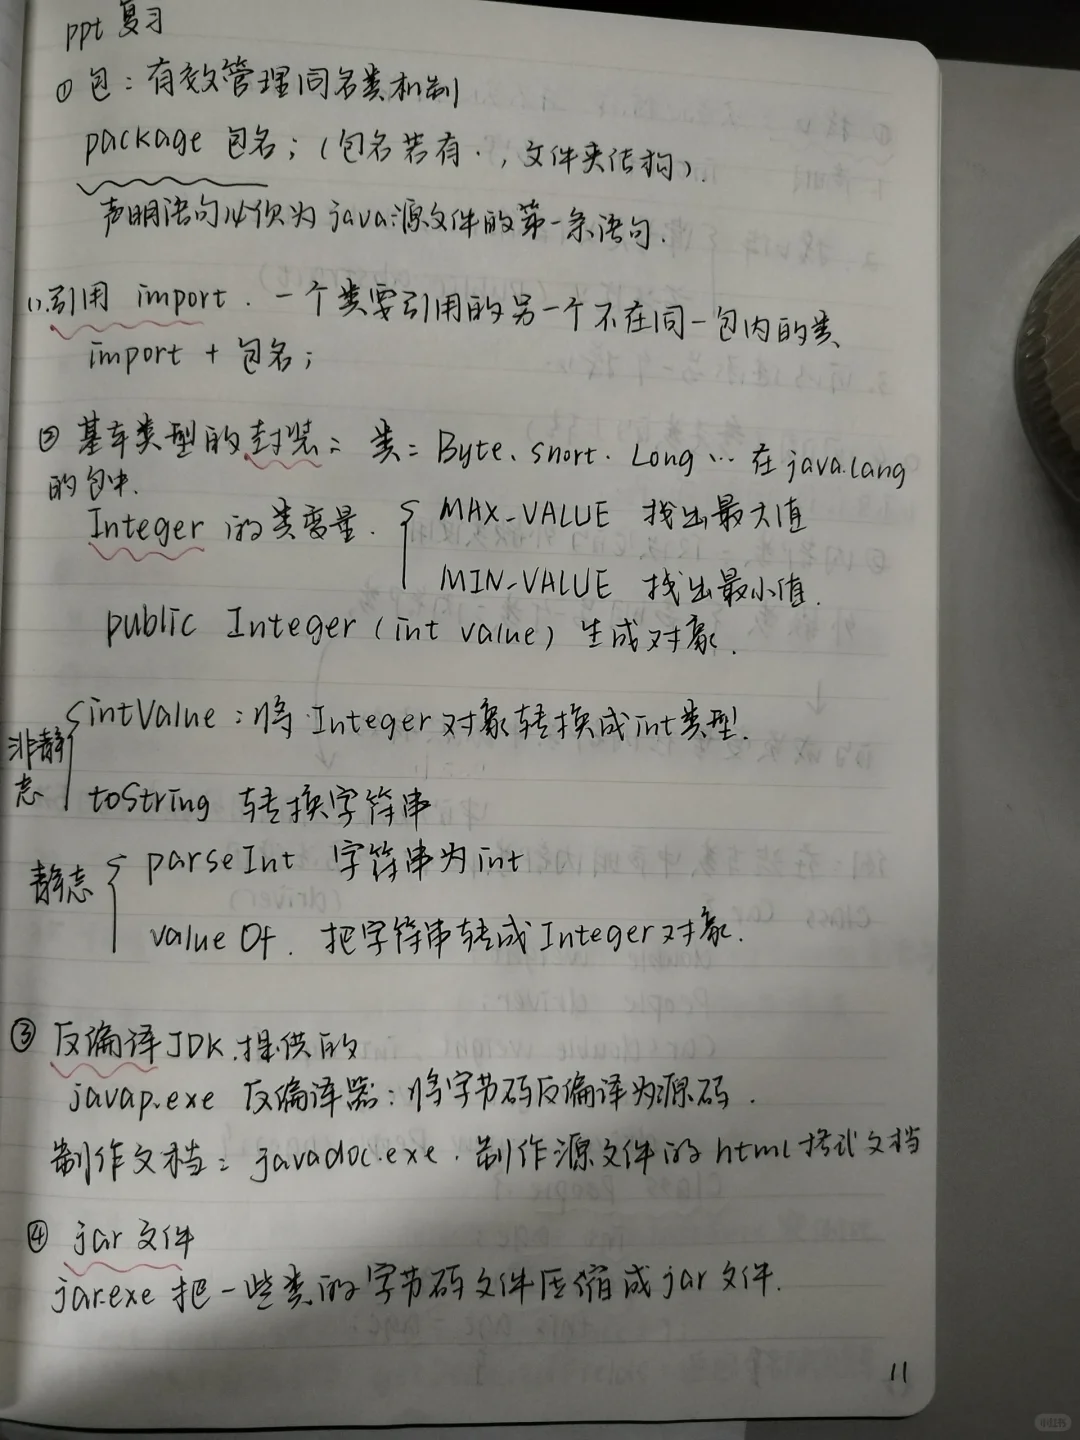 ppt 复习
① 包：有效管理同名类机制
package 包名；（包名若有 . ，文件夹结构）.
声明语句必须为 java源文件的第一条语句.
(1).引用 import . 一个类要引用的另一个不在同一包内的类
import + 包名；
② 基本类型的封装：类：Byte、Short. Long … 在 java.lang
的包中.
Integer 的类变量. MAX_VALUE 找出最大值
MIN_VALUE 找出最小值.
public Integer (int value) 生成对象.
非静态
intValue：将 Integer 对象转换成int类型.
toString 转换字符串
静态
parseInt 字符串为 int
valueOf. 把字符串转成 Integer 对象.
③ 反编译 JDK.提供的
javap.exe 反编译器：将字节码反编译为源码 .
制作文档：javadoc.exe . 制作源文件的 html 格式文档
④ jar 文件
jar.exe 把一些类的字节码文件压缩成 jar 文件.
11
小红书